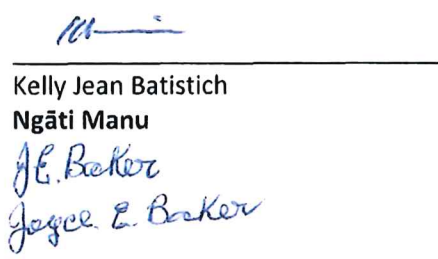 Kelly Jean Batistich
Ngāti Manu
J.E. Baker
Joyce. E. Baker